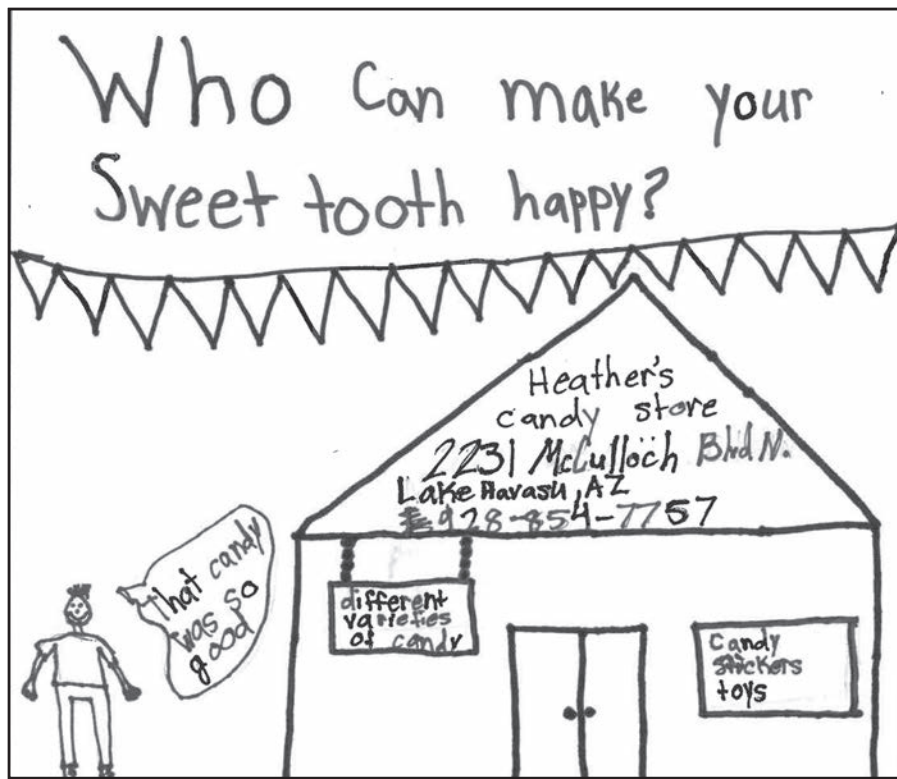 Who Can make your
Sweet tooth happy?
Heather's
candy store
2231 McCulloch Blvd N.
Lake Havasu, AZ
928-854-7757
that candy
was so
good
different
varieties
of candy
Candy
stickers
toys